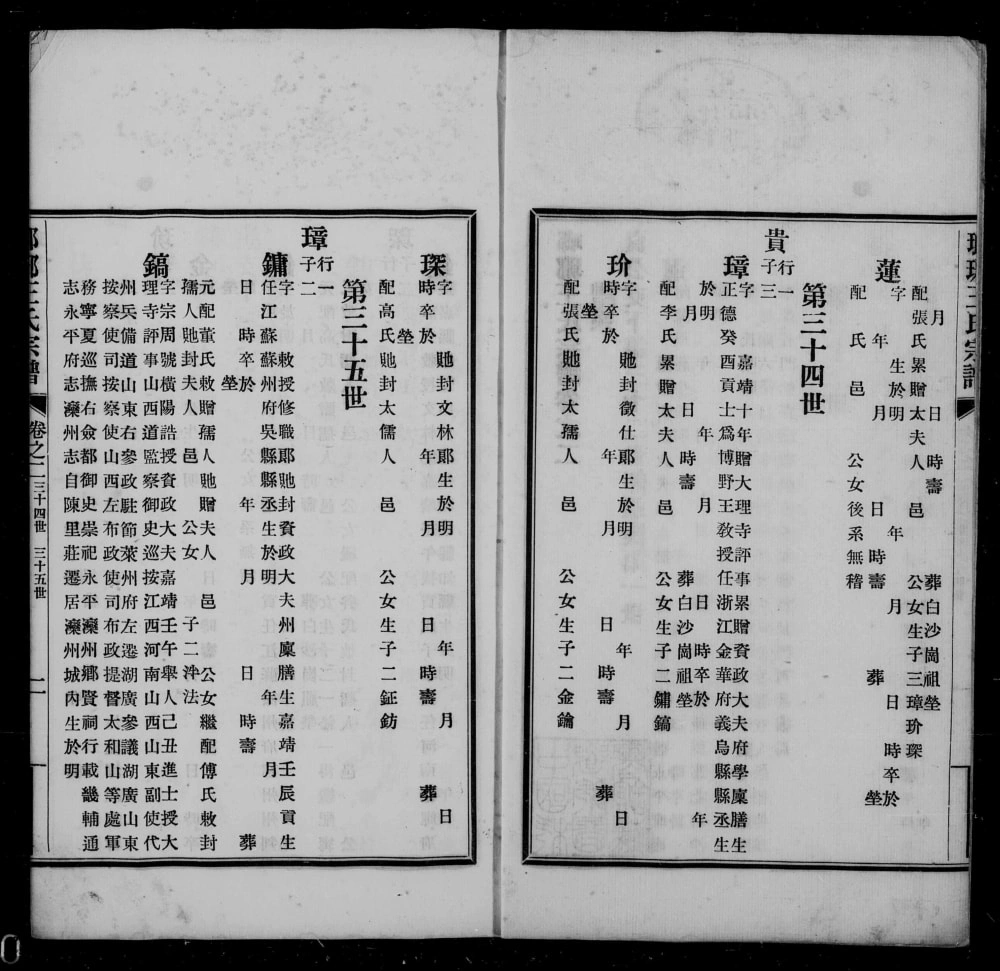 瑯琊王氏宗譜
月 日 時壽 葬白沙崗祖塋
配張氏累贈太夫人 邑 公女生子三璋玠琛
蓮
字 生於明 年 月 日 時卒於
年 月 日 時壽 葬 塋
配 氏 邑 公女後系無稽
第三十四世
貴
行一
子三
璋
字 嘉靖十年贈大理寺評事累贈資政大夫府學廩膳生
正德癸酉貢士爲博野王敎授任浙江金華府義烏縣縣丞生
於明 年 月 日 時卒於 年
月 日 時壽 葬白沙崗祖塋
配李氏累贈太夫人 邑 公女生子二鏞鎬
玠
字 貤封徵仕郞生於明 年 月 日
時卒於 年 月 日 時壽 葬
塋
配張氏貤封太孺人 邑 公女生子二金鑰
琛
字 貤封文林郞生於明 年 月 日
時卒於 年 月 日 時壽 葬
塋
配高氏貤封太儒人 邑 公女生子二鉦鈁
第三十五世
璋
行一
子二
鏞
字 敕授修職郞貤封資政大夫州廩膳生嘉靖壬辰貢生
任江蘇蘇州府吳縣縣丞生於明 年 月
日 時卒於 年 月 日 時壽 葬
塋
元配董氏敕贈孺人貤贈夫人 邑 公女繼配傅氏敕封
孺人貤封夫人 邑 公女 子二洙法
鎬
字宗周號橫陽誥授資政大夫嘉靖壬午舉人己丑進士授大
理寺評事山西道監察御史巡按江西河南山西山東副使代
州兵備道山東右參政駐節萊州府左遷湖廣參議湖廣山東
按察使司按察使山西左布政使司布政提督太和山等處軍
務寧夏巡撫右僉都御史崇祀永平灤州鄕賢祠行載畿輔通
志永平府志灤州志自陳里莊遷居灤州城內生於明
瑯琊王氏宗譜
卷之二
三十四世 三十五世